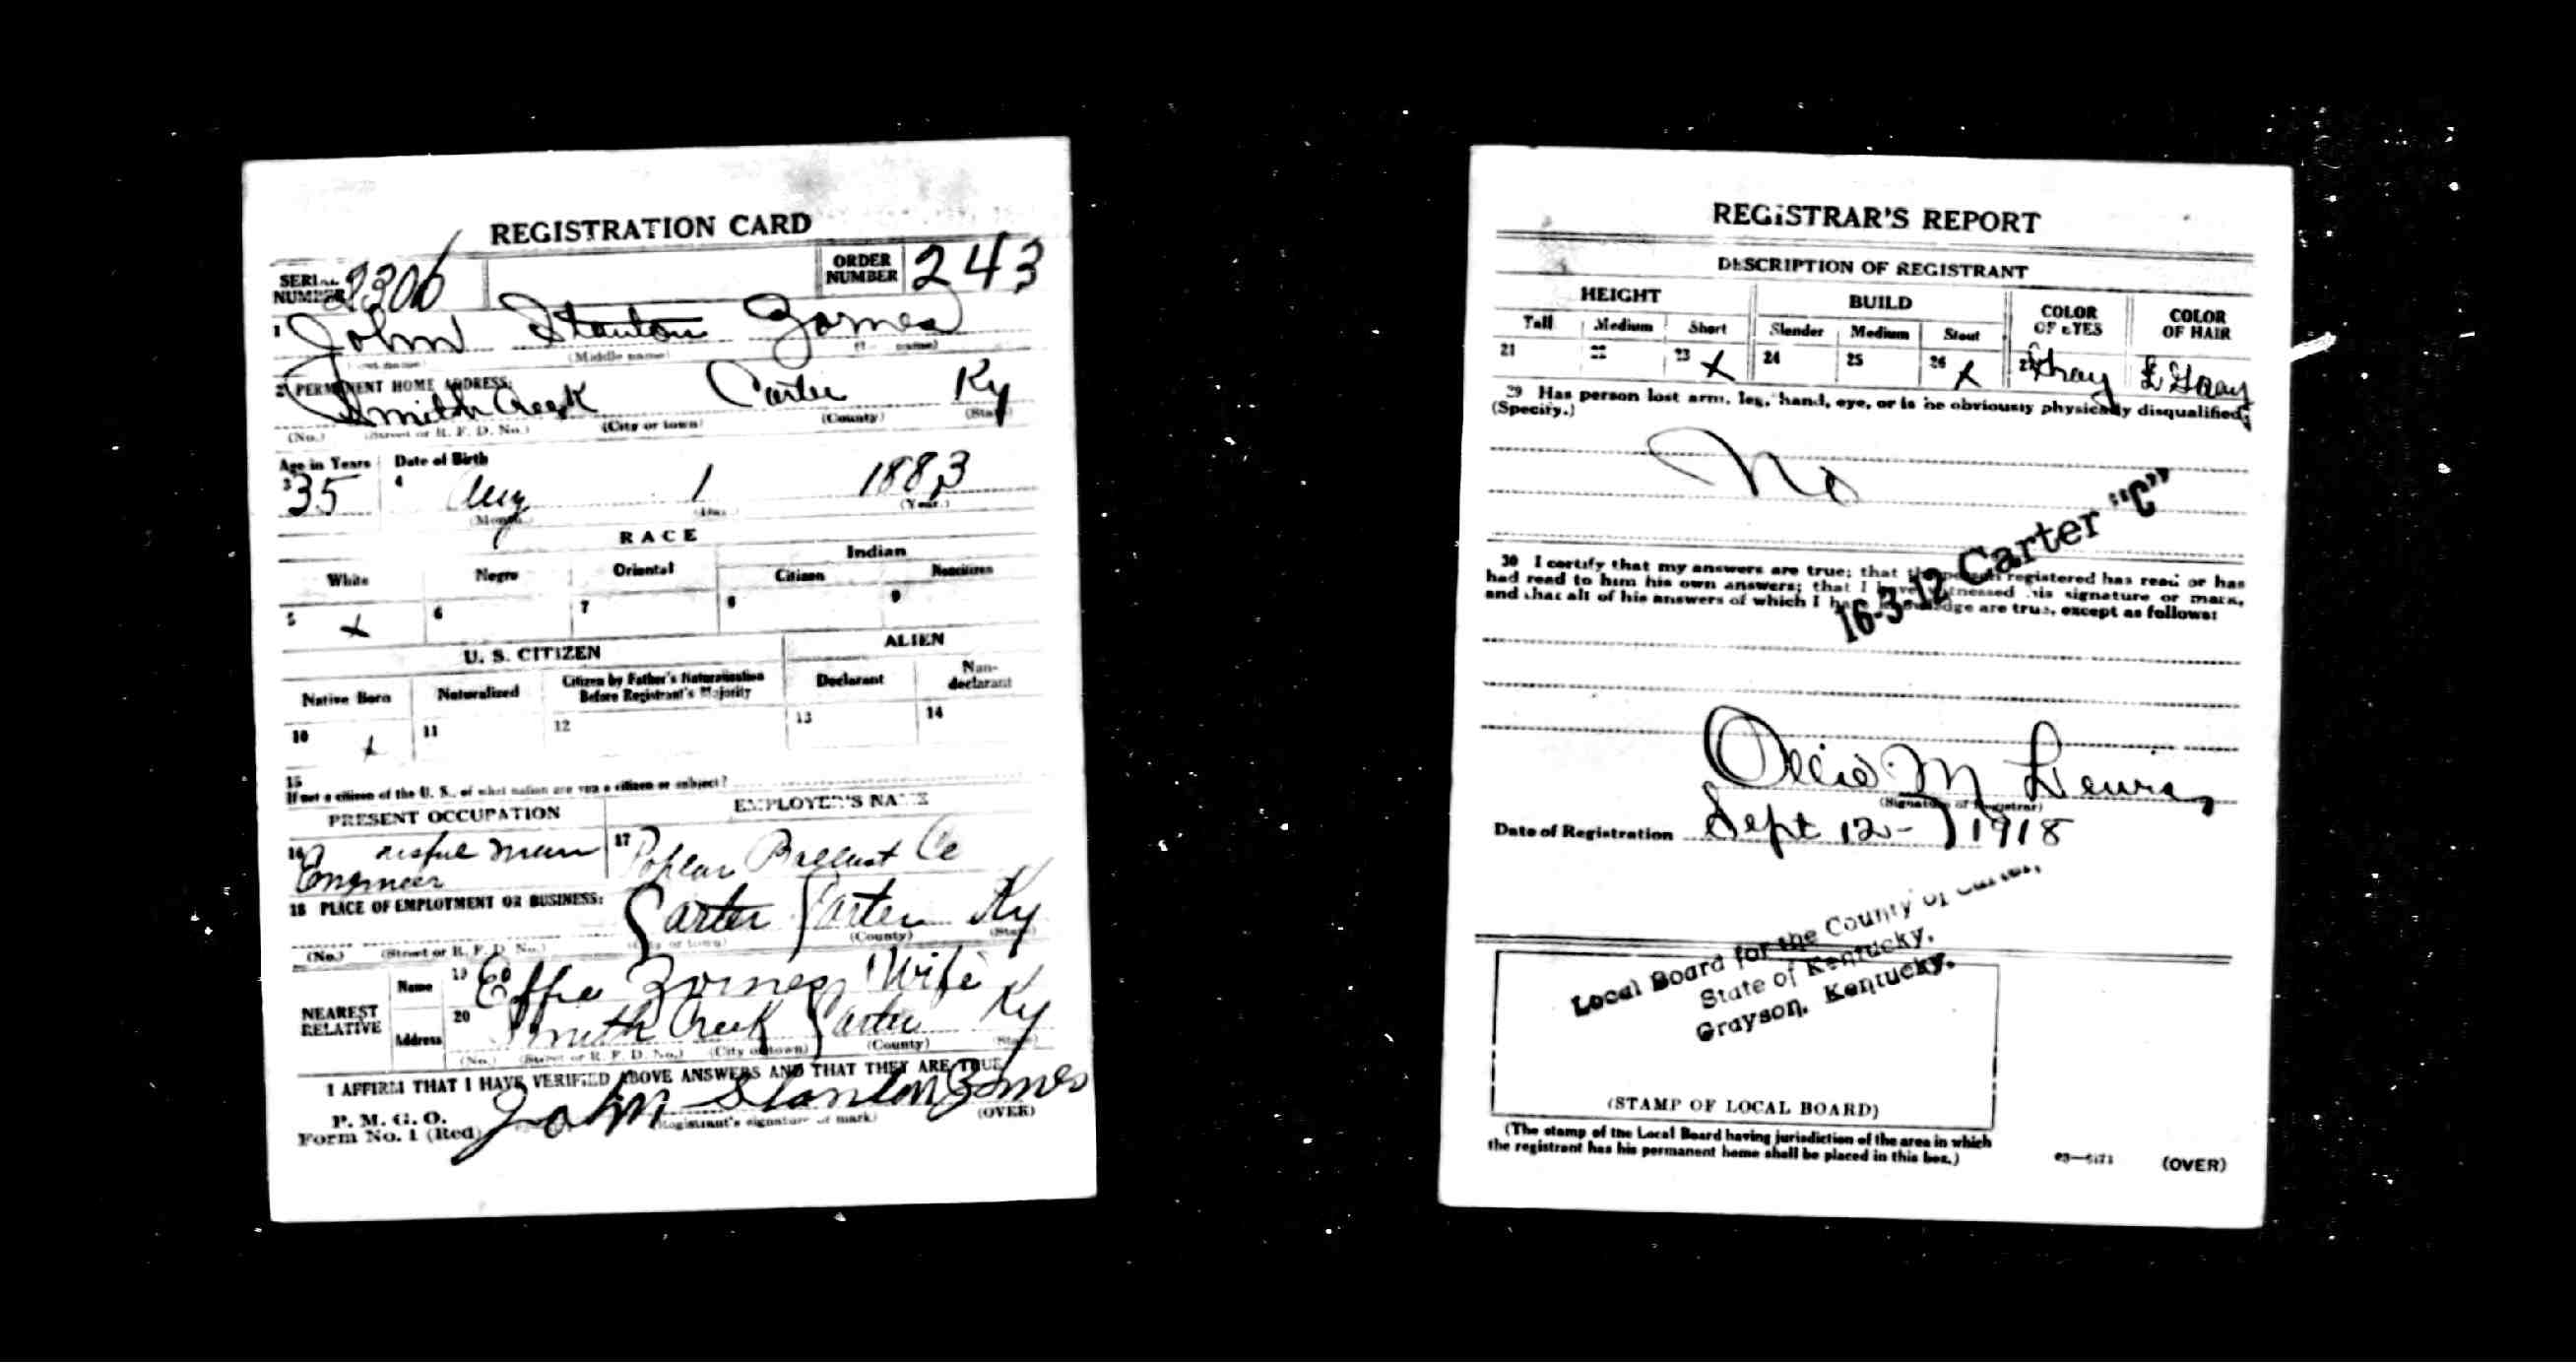 REGISTRATION CARD
SERIAL NUMBER 2306
ORDER NUMBER 243
1 John Stanton Zornes
(Middle name)
2 PERMANENT HOME ADDRESS:
Smith Creek Carter Ky
(No.) (Street or R. F. D. No.) (City or town) (County) (State)
Age in Years Date of Birth
3 35 4 Aug 1 1883
(Month.) (Day.) (Year.)
RACE
White Negro Oriental Indian
Citizen Noncitizen
5 x 6 7 8 9
U. S. CITIZEN ALIEN
Native Born Naturalized Citizen by Father's Naturalization Before Registrant's Majority Declarant Non-declarant
10 x 11 12 13 14
15
If not a citizen of the U. S., of what nation are you a citizen or subject?
PRESENT OCCUPATION EMPLOYER'S NAME
16 Engineer 17 Ballast Co
18 PLACE OF EMPLOYMENT OR BUSINESS:
Carter Carter Ky
(No.) (Street or R. F. D. No.) (City or town) (County) (State)
NEAREST RELATIVE
Name 19 Effie Zornes Wife
Address 20 Smith Creek Carter Ky
(No.) (Street or R. F. D. No.) (City or town) (County) (State)
I AFFIRM THAT I HAVE VERIFIED ABOVE ANSWERS AND THAT THEY ARE TRUE
P. M. G. O.
Form No. 1 (Red) John Stanton Zornes
(Registrant's signature or mark) (OVER)
REGISTRAR'S REPORT
DESCRIPTION OF REGISTRANT
HEIGHT BUILD COLOR OF EYES COLOR OF HAIR
Tall Medium Short Slender Medium Stout
21 22 23 x 24 25 26 x 27 Gray Gray
29 Has person lost arm, leg, hand, eye, or is he obviously physically disqualified?
(Specify.)
No
16-3-12 Carter "C"
30 I certify that my answers are true; that the person registered has read or has
had read to him his own answers; that I have witnessed his signature or mark,
and that all of his answers of which I have knowledge are true, except as follows:
Ollie M Lewis
(Signature of Registrar)
Date of Registration Sept 12- 1918
Local Board for the County of Carter,
State of Kentucky,
Grayson, Kentucky.
(STAMP OF LOCAL BOARD)
(The stamp of the Local Board having jurisdiction of the area in which
the registrant has his permanent home shall be placed in this box.)
(OVER)